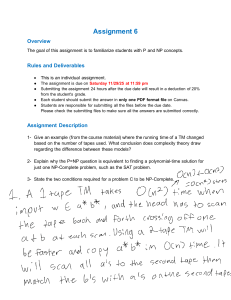 Assignment 6
Overview
The goal of this assignment is to familiarize students with P and NP concepts.
Rules and Deliverables
• This is an individual assignment.
• The assignment is due on Saturday 11/29/25 at 11:59 pm
• Submitting the assignment 24 hours after the due date will result in a deduction of 25% from the student's grade.
• Each student should submit the answer in only one PDF format file on Canvas.
• Students are responsible for submitting all the files before the due date.
Please check the submitting files to make sure all the answers are submitted correctly.
Assignment Description
1- Give an example (from the course material) where the running time of a TM changed
based on the number of tapes used. What conclusion does complexity theory draw
regarding the difference between these models?
2- Explain why the P=NP question is equivalent to finding a polynomial-time solution for
just one NP-Complete problem, such as the SAT problem.
3- State the two conditions required for a problem C to be NP-Complete.
O(n)+O(n)
1. A 1 tape TM takes O(n²) time when
input w ∈ a* b*, and the head has to scan
the tape back and forth crossing off one
a + b at each scan. Using a 2 tape TM will
be faster and copy a* b* in O(n) time. It
will scan all a's to the second tape then
match the b's with a's on the second tape